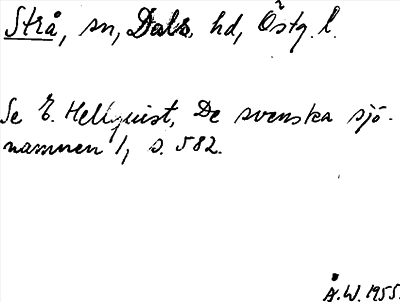 Strå, sn, Dals hd, Östg. l.
Se E. Hellquist, De svenska sjö-
namnen 1, s. 582.
Å.W. 1955.